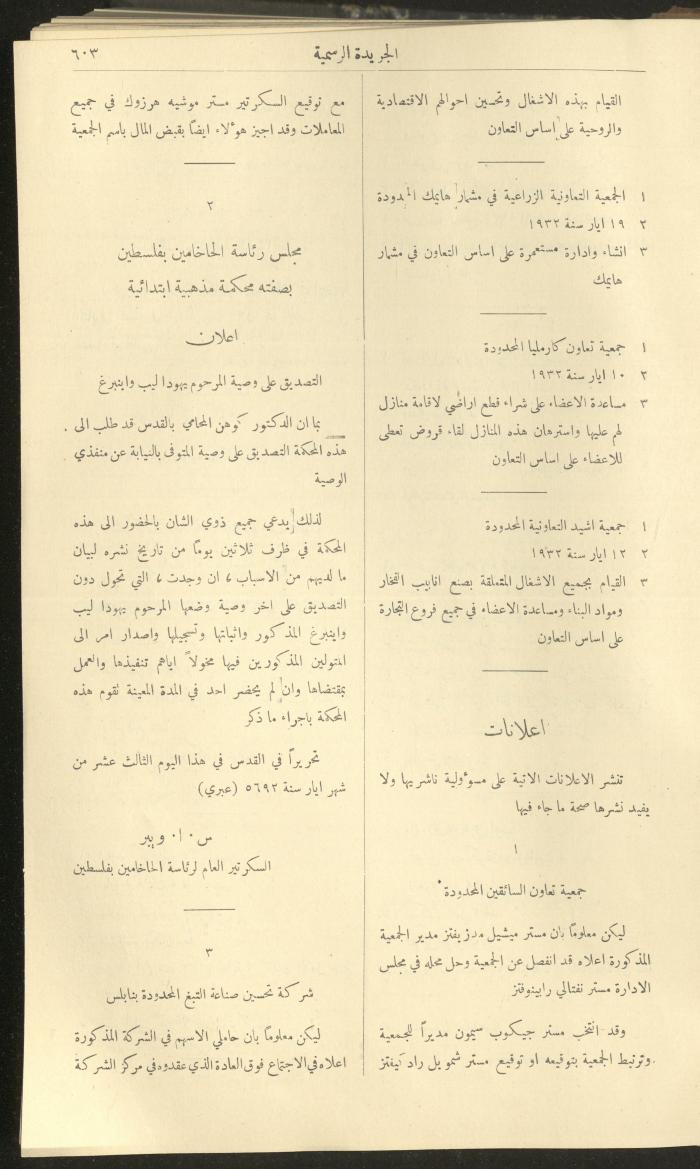 الجريدة الرسمية
٦٠٣
القيام بهذه الاشغال وتحسين احوالهم الاقتصادية
والروحية على اساس التعاون
١ الجمعية التعاونية الزراعية في مشمار هايمك المحدودة
٢ ١٩ ايار سنة ١٩٣٢
٣ انشاء وادارة مستعمرة على اساس التعاون في مشمار
هايمك
١ جمعية تعاون كارمليا المحدودة
٢ ١٠ ايار سنة ١٩٣٢
٣ مساعدة الاعضاء على شراء قطع اراضي لاقامة منازل
لهم عليها واسترهان هذه المنازل لقاء قروض تعطى
للاعضاء على اساس التعاون
١ جمعية اشيد التعاونية المحدودة
٢ ١٢ ايار سنة ١٩٣٢
٣ القيام بجميع الاشغال المتعلقة بصنع انابيب الفخار
ومواد البناء ومساعدة الاعضاء في جميع فروع التجارة
على اساس التعاون
اعلانات
تنشر الاعلانات الاتية على مسؤولية ناشريها ولا
يفيد نشرها صحة ما جاء فيها
١
جمعية تعاون السائقين المحدودة
ليكن معلومًا بان مستر ميشيل مدزيفتز مدير الجمعية
المذكورة اعلاه قد انفصل عن الجمعية وحل محله في مجلس
الادارة مستر نفتالي رابينوفتز
وقد انتخب مستر جيكوب سيمون مديرًا للجمعية
وترتبط الجمعية بتوقيعه او توقيع مستر شمويل راد كيفتز
مع توقيع السكرتير مستر موشيه هرزوك في جميع
المعاملات وقد اجيز هؤلاء ايضًا بقبض المال باسم الجمعية
٢
مجلس رئاسة الحاخامين بفلسطين
بصفته محكمة مذهبية ابتدائية
اعلان
التصديق على وصية المرحوم يهودا ليب واينبرغ
بما ان الدكتور كوهن المحامي بالقدس قد طلب الى
هذه المحكمة التصديق على وصية المتوفى بالنيابة عن منفذي
الوصية
لذلك يدعي جميع ذوي الشان بالحضور الى هذه
المحكمة في ظرف ثلاثين يومًا من تاريخ نشره لبيان
ما لديهم من الاسباب ، ان وجدت ، التي تحول دون
التصديق على اخر وصية وضعها المرحوم يهودا ليب
واينبرغ المذكور واثباتها وتسجيلها واصدار امر الى
المتولين المذكورين فيها مخولاً اياهم تنفيذها والعمل
بمقتضاها وان لم يحضر احد في المدة المعينة تقوم هذه
المحكمة باجراء ما ذكر
تحريرًا في القدس في هذا اليوم الثالث عشر من
شهر ايار سنة ٥٦٩٢ (عبري)
س٠ ا٠ ويبر
السكرتير العام لرئاسة الحاخامين بفلسطين
٣
شركة تحسين صناعة التبغ المحدودة بنابلس
ليكن معلومًا بان حاملي الاسهم في الشركة المذكورة
اعلاه في الاجتماع فوق العادة الذي عقدوه في مركز الشركة